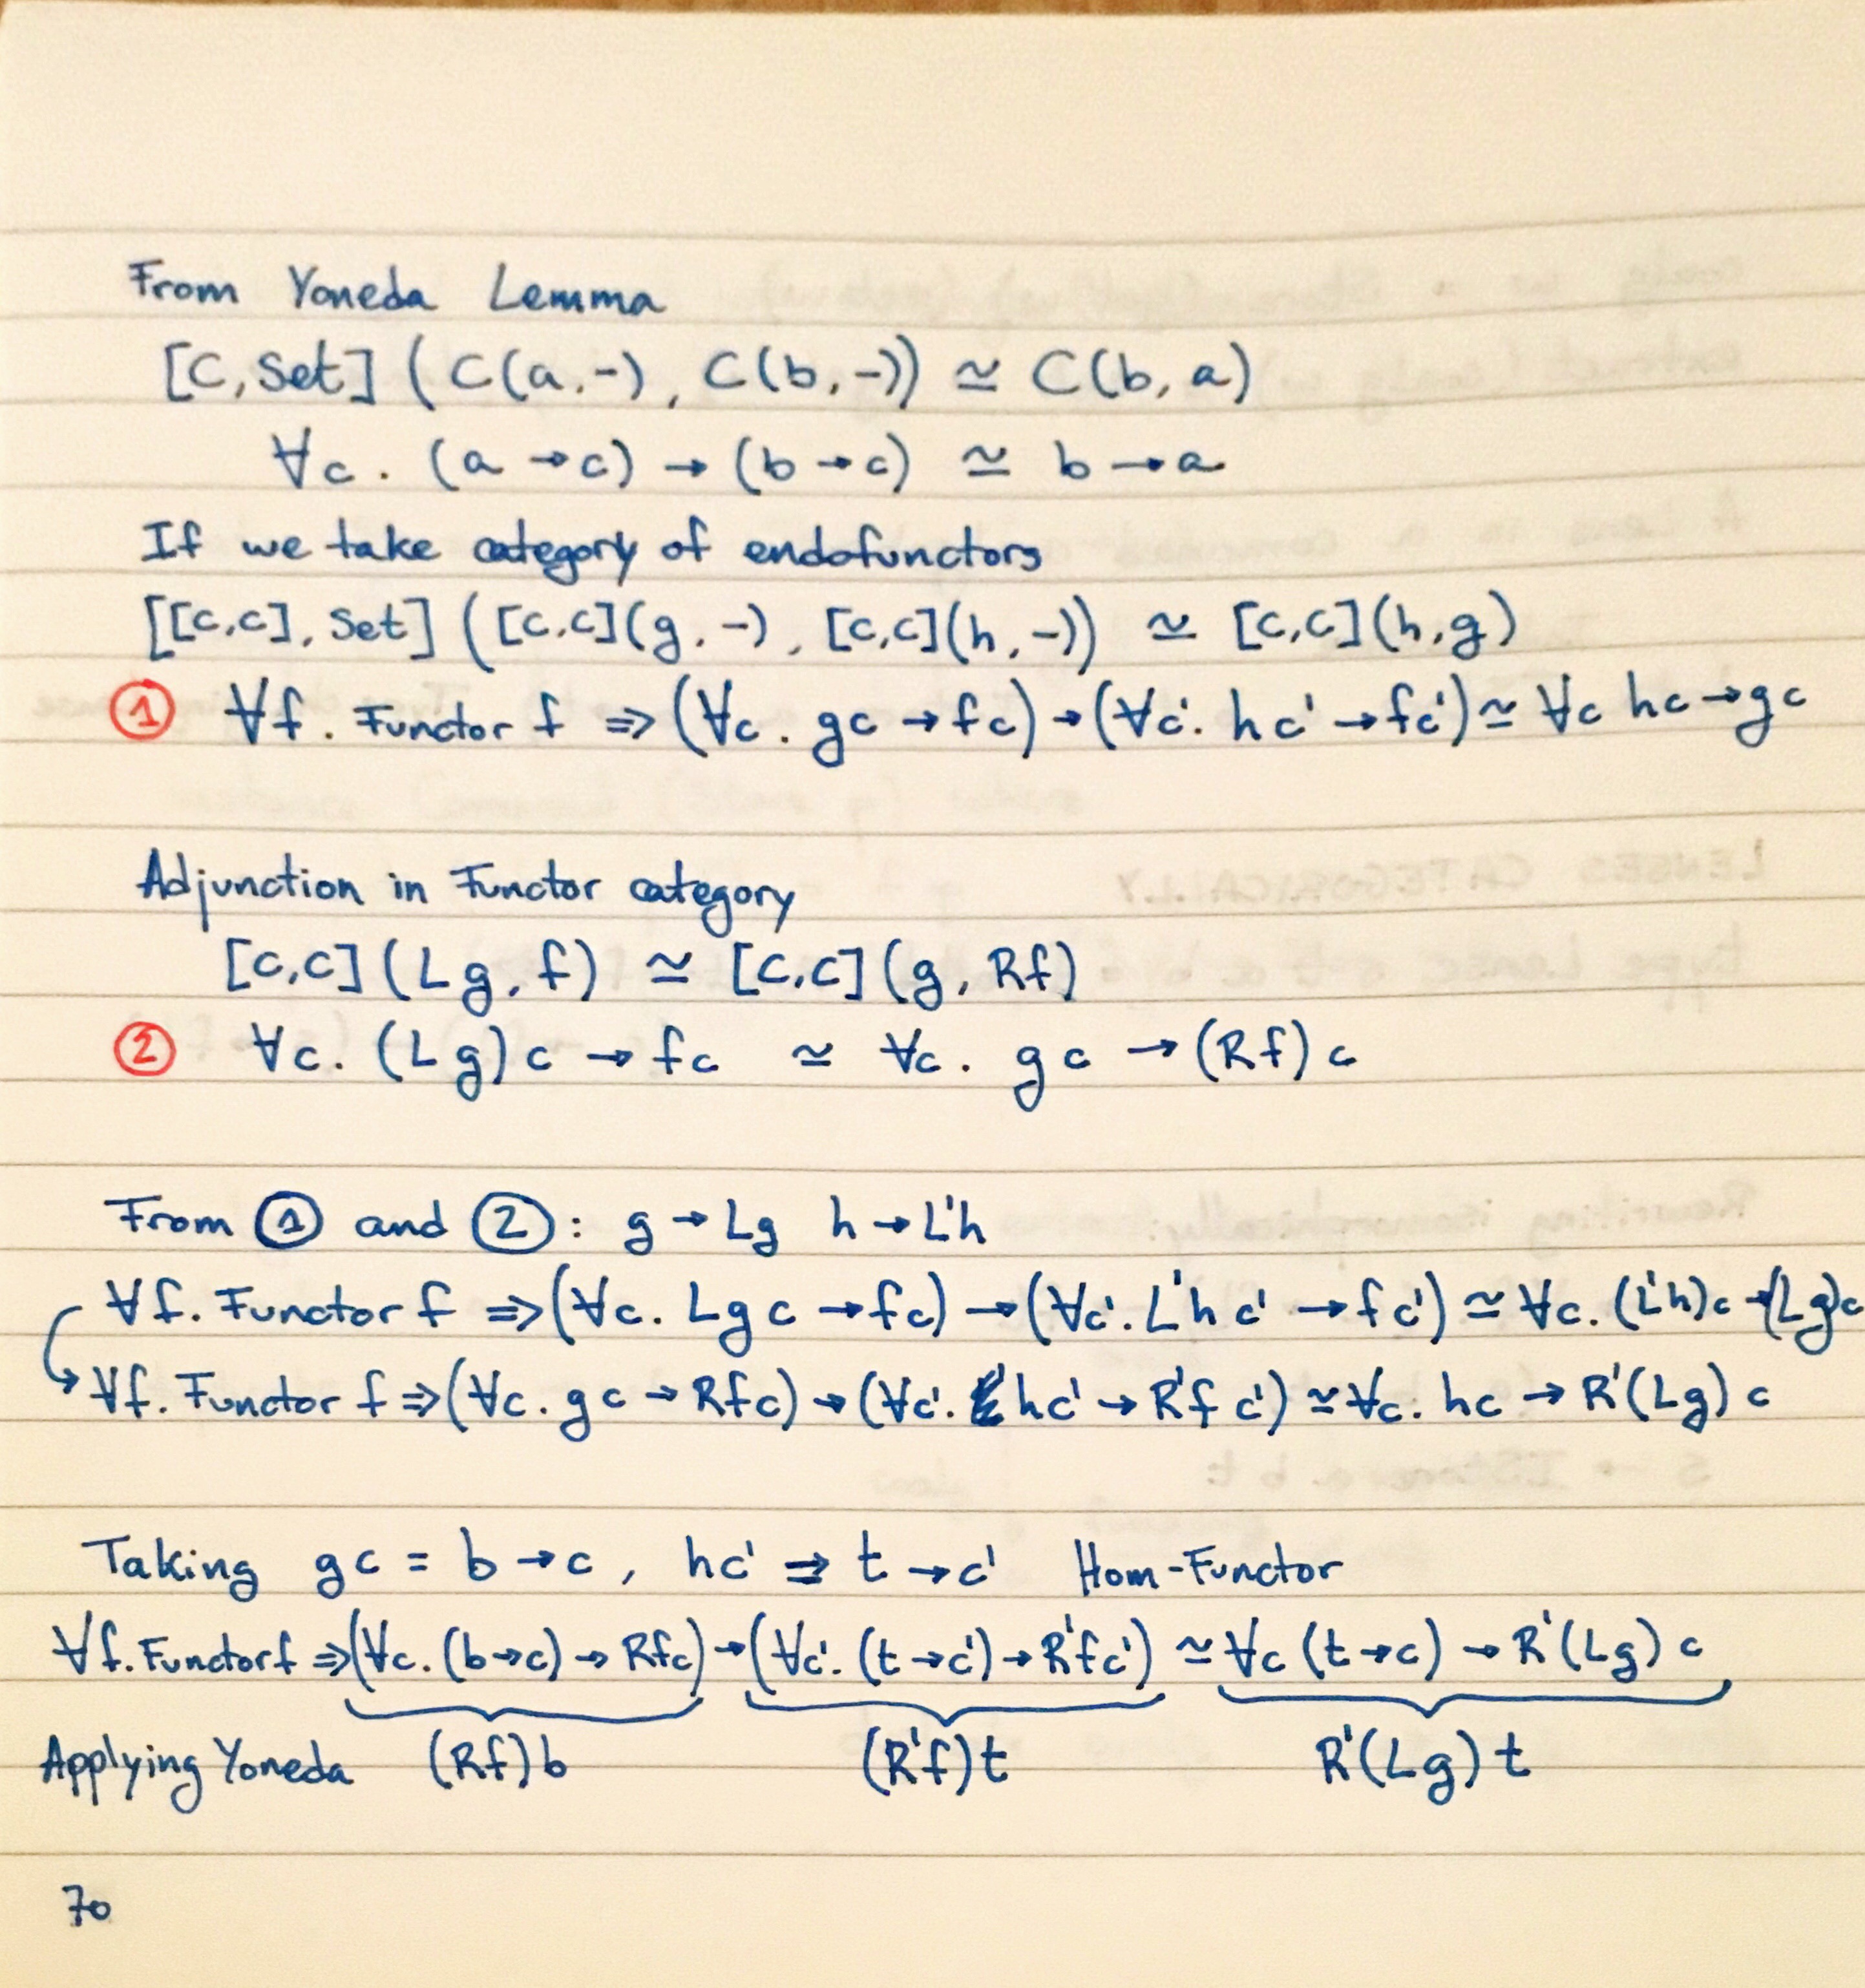 From Yoneda Lemma
[C,Set] (C(a,-), C(b,-)) ≃ C(b,a)
∀c. (a→c) → (b→c) ≃ b→a
If we take category of endofunctors
[[C,C], Set] ([C,C](g,-), [C,C](h,-)) ≃ [C,C](h,g)
① ∀f. Functor f ⇒ (∀c. gc → fc) → (∀c'. hc' → fc') ≃ ∀c hc → gc
Adjunction in Functor category
[C,C](Lg, f) ≃ [C,C](g, Rf)
② ∀c. (Lg)c → fc ≃ ∀c. gc → (Rf)c
From ① and ②: g → Lg h → L'h
∀f. Functor f ⇒ (∀c. Lgc → fc) → (∀c'. L'hc' → fc') ≃ ∀c. (L'h)c → (Lg)c
∀f. Functor f ⇒ (∀c. gc → Rfc) → (∀c'. hc' → R'fc') ≃ ∀c. hc → R'(Lg)c
Taking gc = b→c, hc' = t→c' Hom-Functor
∀f. Functor f ⇒ (∀c. (b→c) → Rfc) → (∀c'. (t→c') → R'fc') ≃ ∀c (t→c) → R'(Lg)c
Applying Yoneda (Rf)b (R'f)t R'(Lg)t
70